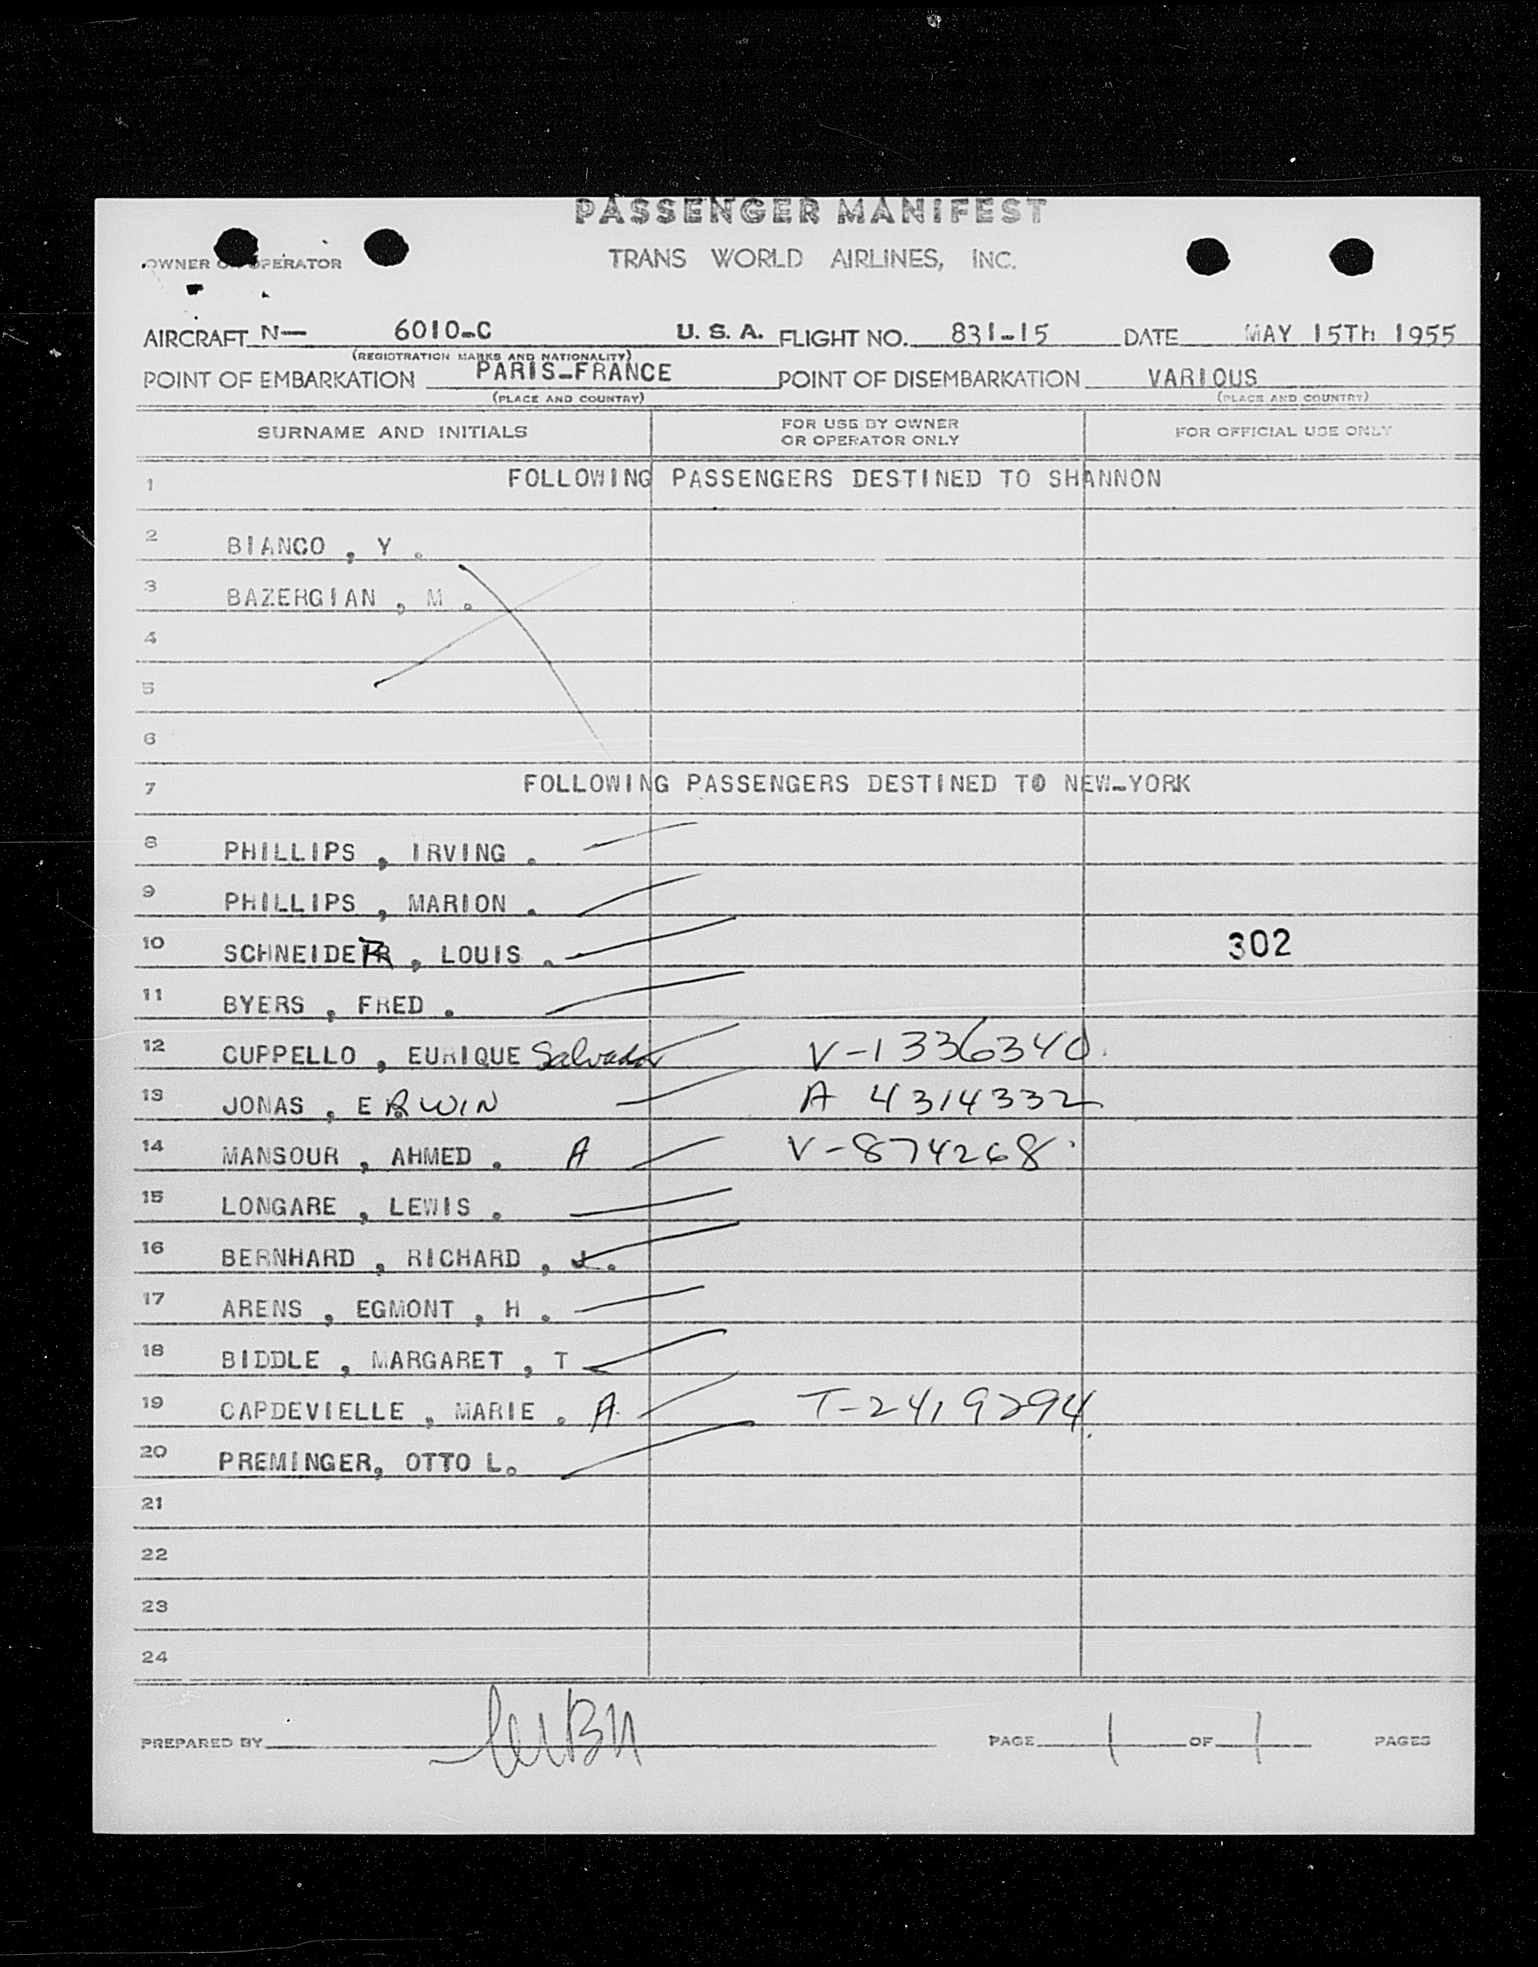 PASSENGER MANIFEST
OWNER OR OPERATOR TRANS WORLD AIRLINES, INC.
AIRCRAFT N— 6010-C U. S. A. FLIGHT NO. 831-15 DATE MAY 15TH 1955
(REGISTRATION MARKS AND NATIONALITY)
POINT OF EMBARKATION PARIS-FRANCE POINT OF DISEMBARKATION VARIOUS
(PLACE AND COUNTRY) (PLACE AND COUNTRY)
SURNAME AND INITIALS FOR USE BY OWNER OR OPERATOR ONLY FOR OFFICIAL USE ONLY
1 FOLLOWING PASSENGERS DESTINED TO SHANNON
2 BIANCO , Y .
3 BAZERGIAN , M .
4
5
6
7 FOLLOWING PASSENGERS DESTINED TO NEW-YORK
8 PHILLIPS , IRVING .
9 PHILLIPS , MARION .
10 SCHNEIDER , LOUIS . 302
11 BYERS , FRED .
12 CUPPELLO , EURIQUE Salvador V-1336340
13 JONAS , ERWIN A 4314332
14 MANSOUR , AHMED . A V-874268
15 LONGARE , LEWIS .
16 BERNHARD , RICHARD , J.
17 ARENS , EGMONT , H .
18 BIDDLE , MARGARET , T
19 CAPDEVIELLE , MARIE . A T-2419294
20 PREMINGER, OTTO L.
21
22
23
24
PREPARED BY PAGE 1 OF 1 PAGES